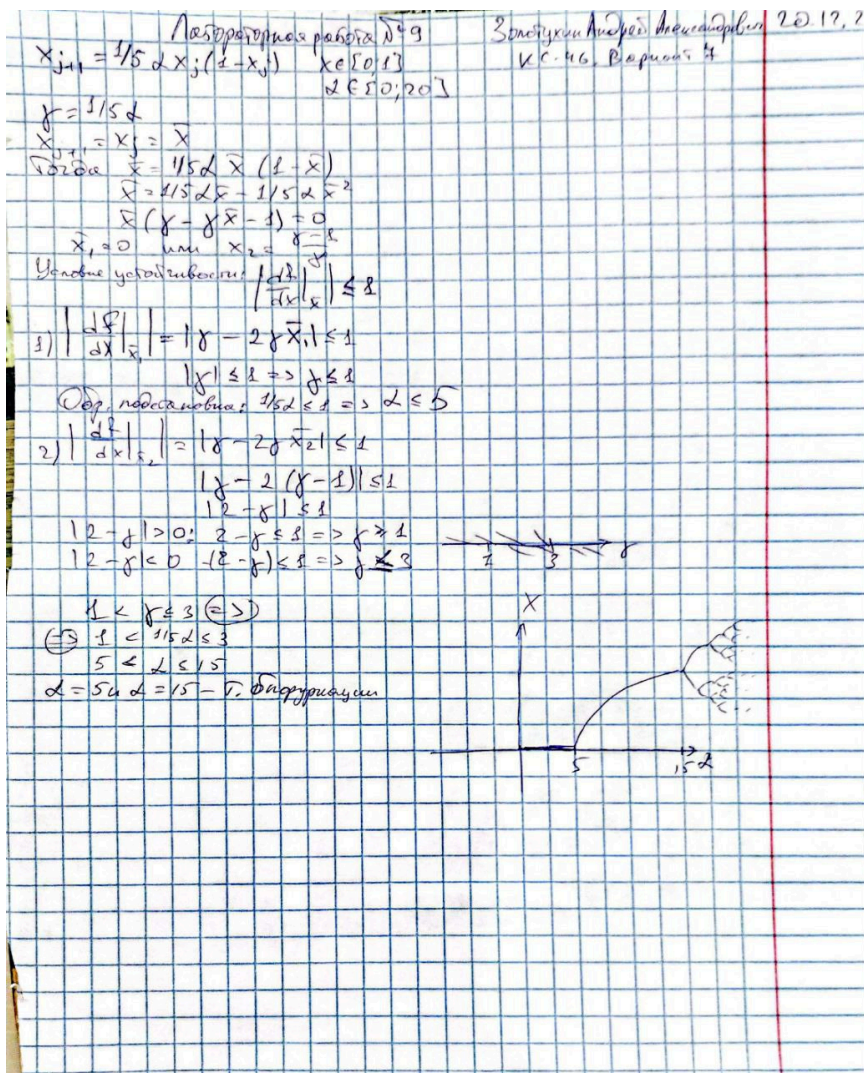 Лабораторная работа №9
Золотухин Андрей Александрович 20.12.2
x_{j+1} = 1/5 α x_j (1-x_j) x∈[0;1]
КС-46. Вариант 7
α∈[0;20]
γ = 1/5 α
x_{j+1} = x_j = x̄
Тогда x̄ = 1/5 α x̄ (1-x̄)
x̄ = 1/5 α x̄ - 1/5 α x̄²
x̄ (γ - γx̄ - 1) = 0
x̄₁ = 0 или x₂ = (γ-1)/γ
Условие устойчивости: |df/dx|_x̄| ≤ 1
1) |df/dx|_x̄₁| = |γ - 2γx̄₁| ≤ 1
|γ| ≤ 1 => γ ≤ 1
Обр. подстановка: 1/5 α ≤ 1 => α ≤ 5
2) |df/dx|_x̄₂| = |γ - 2γx̄₂| ≤ 1
|γ - 2(γ-1)| ≤ 1
|2 - γ| ≤ 1
|2 - γ| > 0: 2 - γ ≤ 1 => γ ≥ 1
|2 - γ| < 0 -(2-γ) ≤ 1 => γ ≤ 3
1 3 γ
1 < γ ≤ 3 =>
=> 1 < 1/5 α ≤ 3
5 < α ≤ 15
α = 5 и α = 15 - т. бифуркации
X
5 15 α